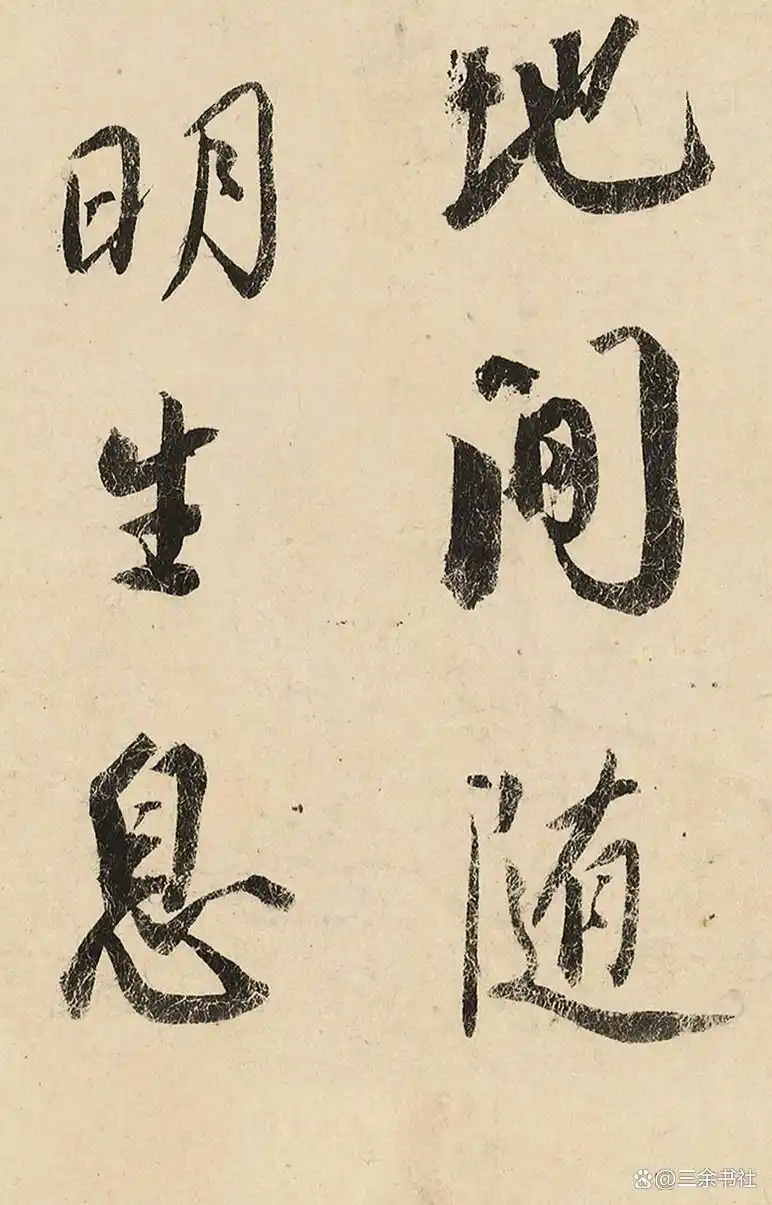 地间随
明生息
@三余书社